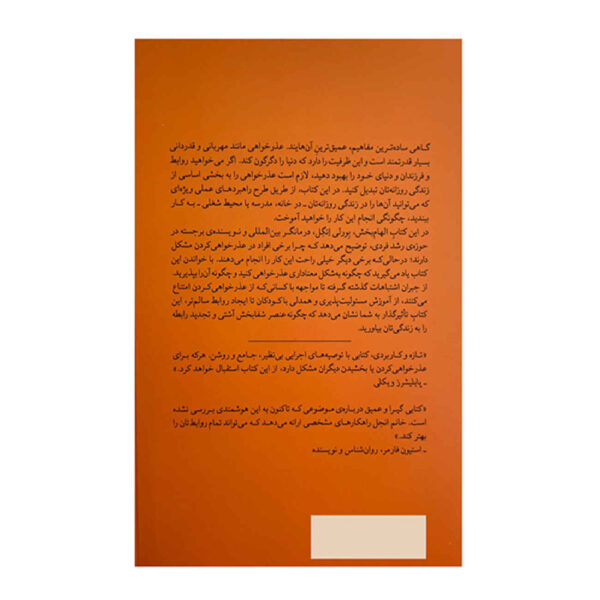 گاهی ساده‌ترین مفاهیم، عمیق‌ترین آن‌هایند. عذرخواهی مانند مهربانی و قدردانی
بسیار قدرتمند است و این ظرفیت را دارد که دنیا را دگرگون کند. اگر می‌خواهید روابط
و فرزندان و دنیای خود را بهبود دهید، لازم است عذرخواهی را به بخشی اساسی از
زندگی روزانه‌تان تبدیل کنید. در این کتاب، از طریق طرح راهبردهای عملی ویژه‌ای
که می‌توانید آن‌ها را در زندگی روزانه‌تان ـ در خانه، مدرسه یا محیط شغلی ـ به کار
ببندید، چگونگی انجام این کار را خواهید آموخت.
در این کتاب الهام‌بخش، بِورلی اِنگِل، درمانگر بین‌المللی و نویسنده‌ی برجسته در
حوزه‌ی رشد فردی، توضیح می‌دهد که چرا برخی افراد در عذرخواهی‌کردن مشکل
دارند؛ درحالی‌که برخی دیگر خیلی راحت این کار را انجام می‌دهند. با خواندن این
کتاب یاد می‌گیرید که چگونه به‌شکل معناداری عذرخواهی کنید و چگونه آن را بپذیرید.
از جبران اشتباهات گذشته گرفته تا مواجهه با کسانی‌که از عذرخواهی‌کردن امتناع
می‌کنند، از آموزش مسئولیت‌پذیری و همدلی با کودکان تا ایجاد روابط سالم‌تر، این
کتاب تأثیرگذار به شما نشان می‌دهد که چگونه عنصر شفابخش آشتی و تجدید رابطه
را به زندگی‌تان بیاورید.
«تازه و کاربردی، کتابی با توصیه‌های اجرایی بی‌نظیر، جامع و روشن. هرکه برای
عذرخواهی‌کردن یا بخشیدن دیگران مشکل دارد، از این کتاب استقبال خواهد کرد.»
ـ پابلیشرز ویکلی
«کتابی گیرا و عمیق درباره‌ی موضوعی که تاکنون به این هوشمندی بررسی نشده
است. خانم انجل راهکارهای مشخصی ارائه می‌دهد که می‌تواند تمام روابط‌تان را
بهتر کند.»
ـ استیون فارمر، روان‌شناس و نویسنده